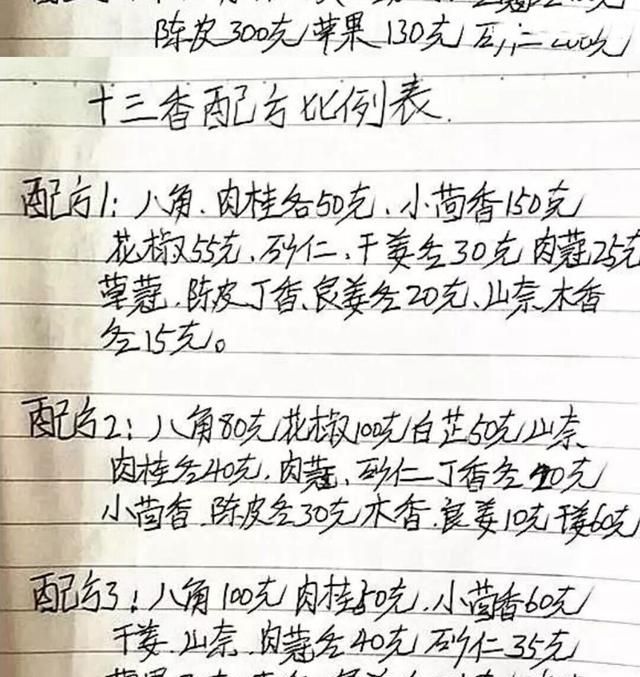 陈皮300克草果130克
十三香配方比例表.
配方1: 八角、肉桂各50克、小茴香150克
花椒55克、砂仁、干姜各30克 肉蔻25克
草蔻、陈皮丁香、良姜各20克、山奈、木香
各15克。
配方2: 八角80克花椒100克白芷50克山奈、
肉桂各40克、肉蔻、砂仁、丁香各20克
小茴香、陈皮各30克木香、良姜10克干姜60克
配方3: 八角100克肉桂50克、小茴香60克
干姜、山奈、肉蔻各40克 砂仁35克